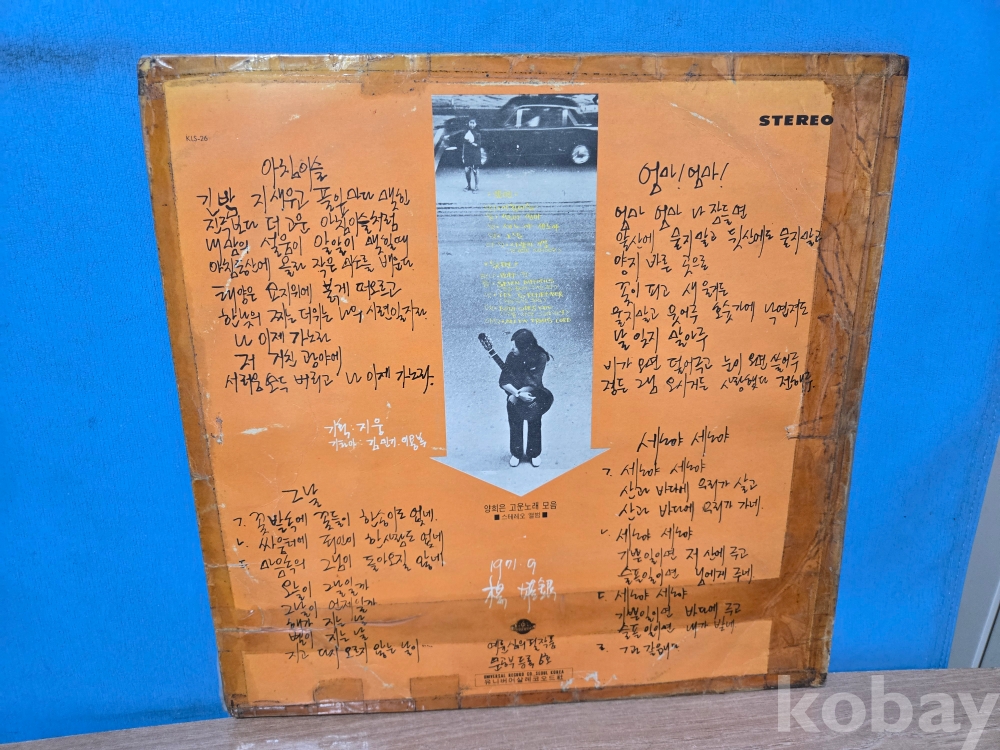 STEREO
KLS-26
아침이슬
긴밤 지새우고 풀잎마다 맺힌
진주보다 더 고운 아침이슬처럼
내 맘의 설움이 알알이 맺힐때
아침동산에 올라 작은 미소를 배운다
태양은 묘지위에 붉게 떠오르고
한낮의 찌는 더위는 나의 시련일지라
나 이제 가노라
저 거친 광야에
서러움 모두 버리고 나 이제 가노라.
기획·지웅
기타아: 김민기·이용복
그날
ㄱ. 꽃밭속에 꽃들이 한송이도 없네.
ㄴ. 싸움터에 죄인이 한사람도 없네
ㄷ. 마음속의 그님이 돌아오질 않네
오늘이 그날일까
그날이 언제일까
해가 지는 날
별이 지는 날
지고 다시 오르지 않는 날이...
양희은 고운노래 모음
■ 스테레오 앨범 ■
1971.9
楊 姬銀
문공부 등록 6호
UNIVERSAL RECORD CO. SEOUL KOREA
유니버어살레코오드사
엄마! 엄마!
엄마 엄마 나 잠들면
앞산에 묻지말고 뒷산에도 묻지말고
양지 바른 곳으로
꽃이 피고 새 우는
울지말고 웃어주 호숫가에 낙엽져도
날 잊지 말아주
비가 오면 덮어주고 눈이 오면 쓸어주
정든 그님 오시거든 사랑했다 전해주.
세노야 세노야
ㄱ. 세노야 세노야
산과 바다에 우리가 살고
산과 바다에 우리가 가네.
ㄴ. 세노야 세노야
기쁜일이면 저 산에 주고
슬픈일이면 님에게 주네.
ㄷ. 세노야 세노야
기쁜일이면 바다에 주고
슬픈일이면 내가 받네
kobay